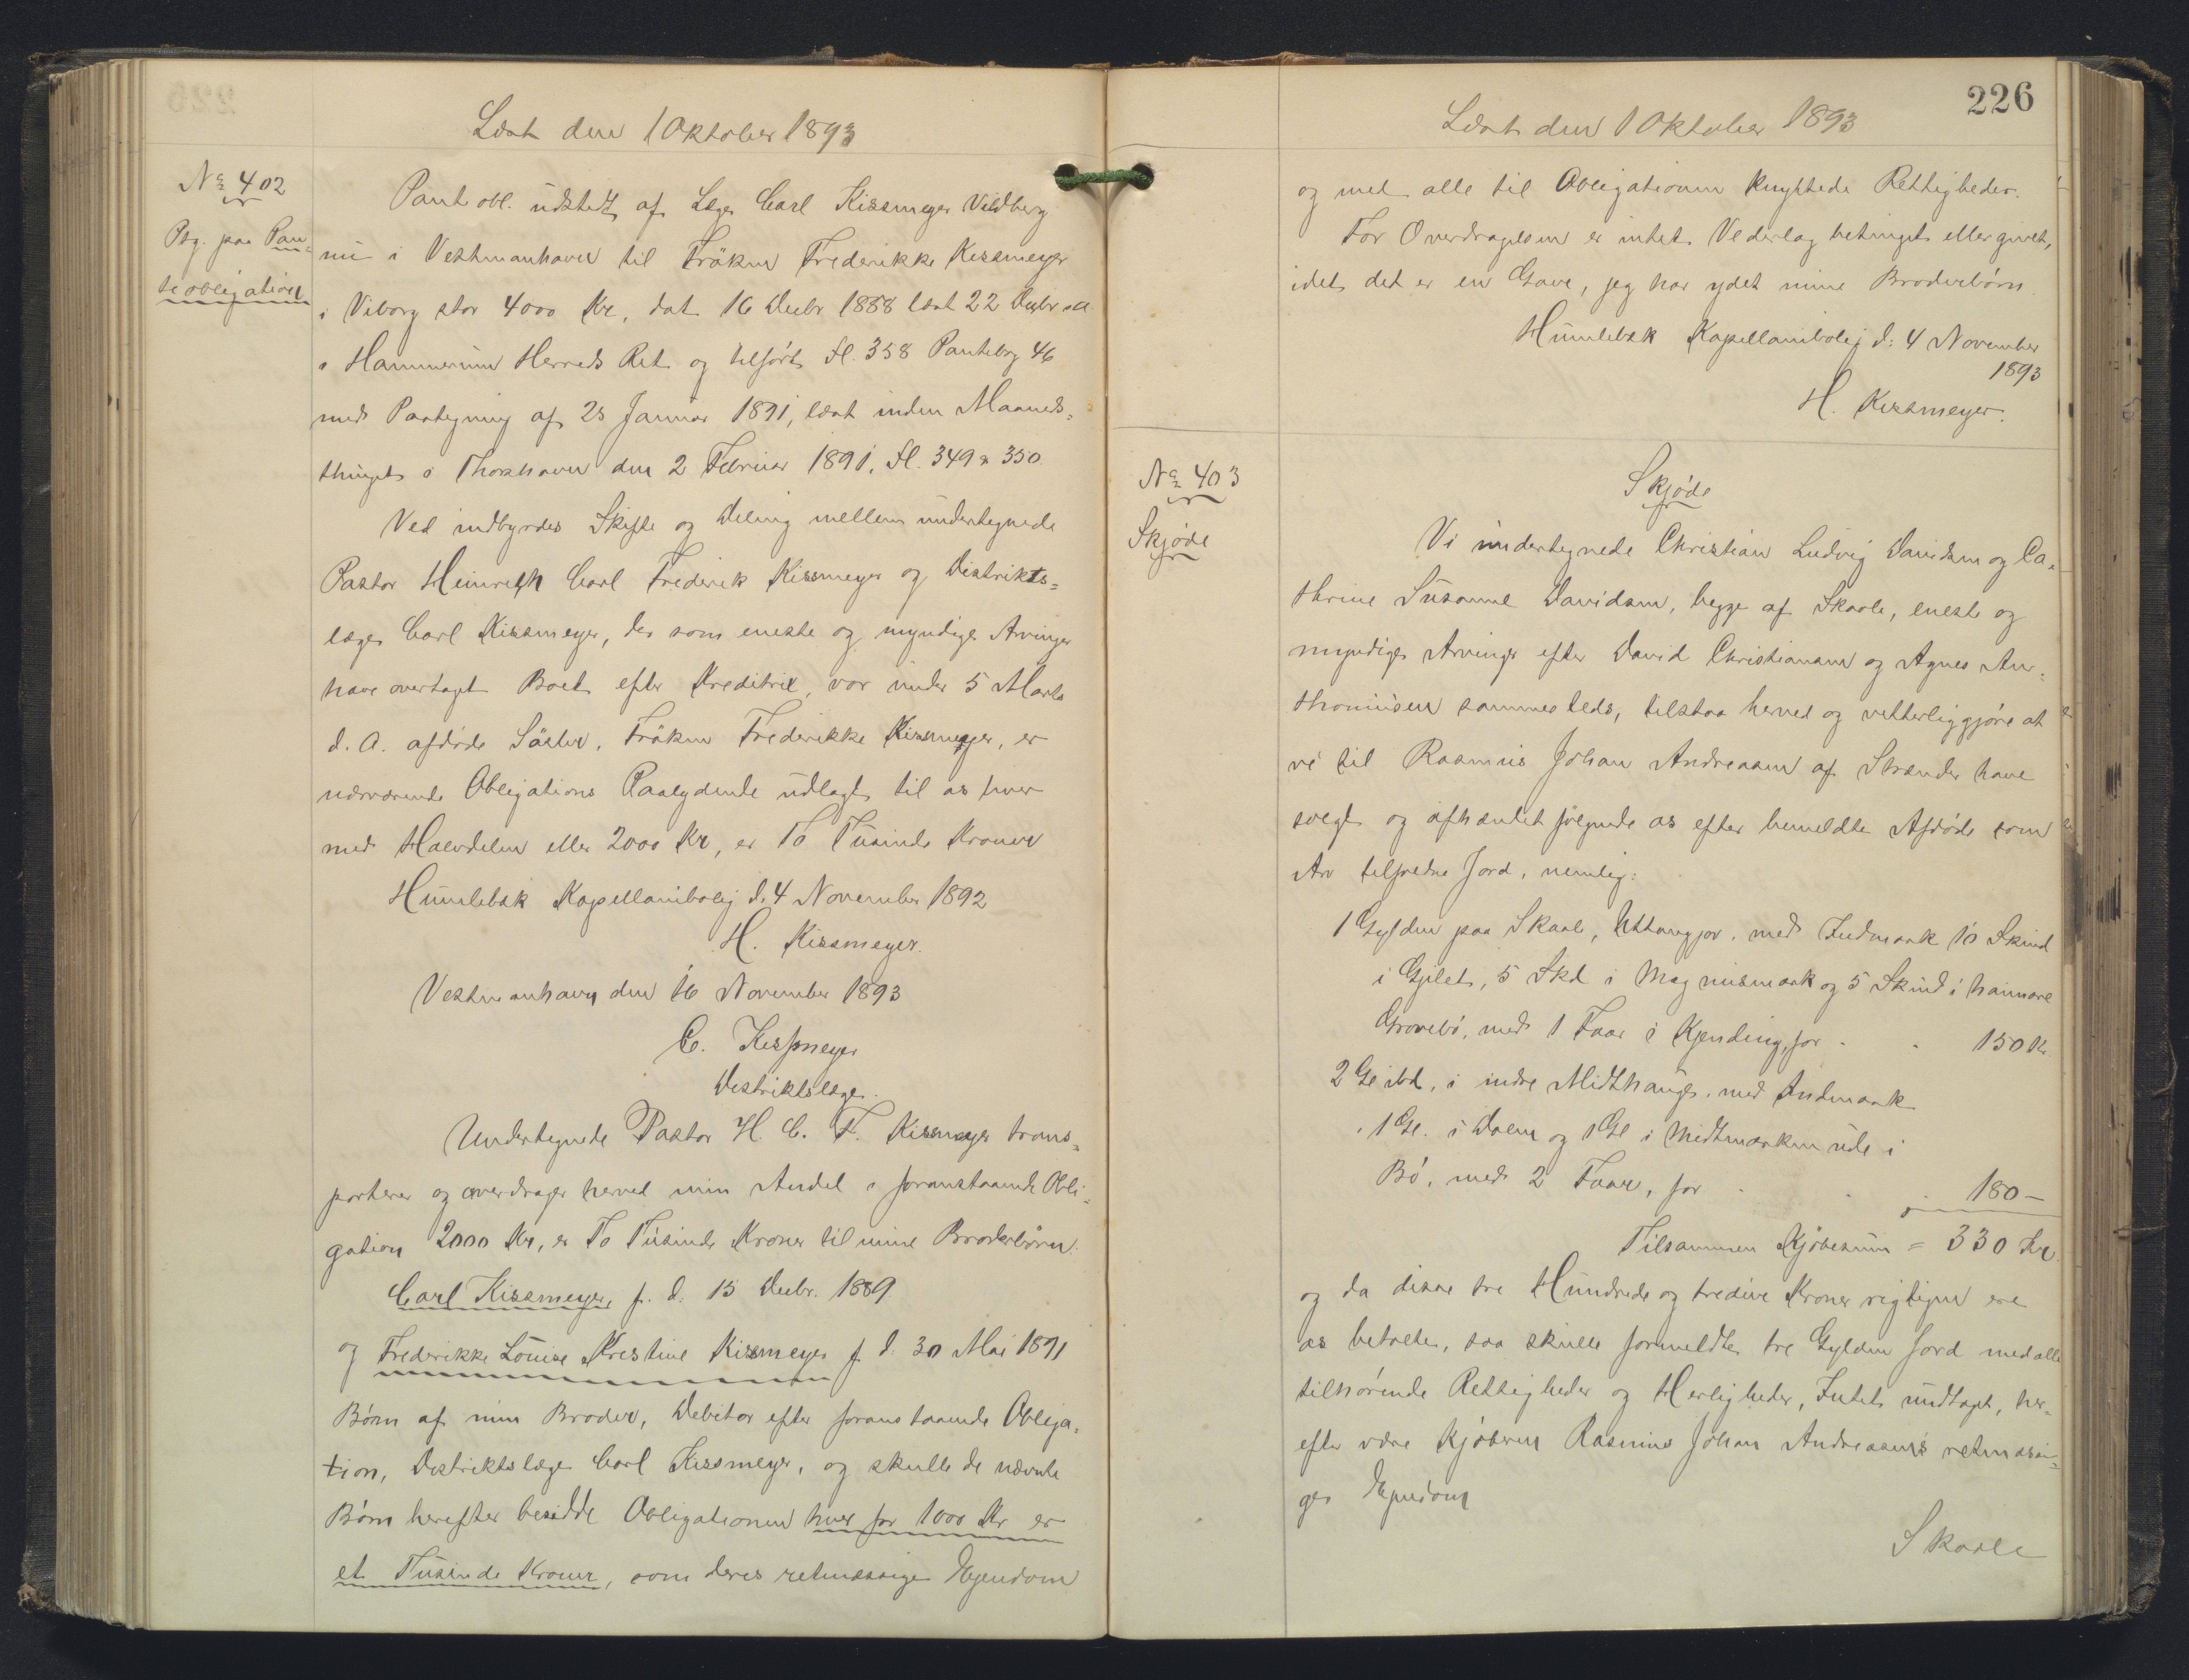 Læst den 1 Oktober 1893
No 402
Ptg. paa Pan-
teobligation
Pantobl. udstedt af Læge Carl Kissmeyer Vildbjerg
nu i Vestmanhavn til Fröken Frederikke Kissmeyer
i Viborg stor 4000 Kr, dat 16 Decbr 1888 læst 22 Decbr s.A.
i Hammerum Herreds Ret og tilført Fl. 358 Pantebog 46
med Paategning af 23 Januar 1891, læst inden Maaneds-
thinget i Thorshavn den 2 Februar 1891. Fl. 349 & 350
Ved indbyrdes Skifte og Deling mellem undertegnede
Pastor Heinrich Carl Frederik Kissmeyer og Distrikts-
læge Carl Kissmeyer, der som eneste og myndige Arvinger
have overtaget Boet efter Kreditrix, vor under 5 Marts
d. A. afdøde Söster, Fröken Frederikke Kissmeyer, er
nærværende Obligations Paalydende udlagt til os hver
med Halvdelen eller 2000 Kr, er To Tusinde Kroner
Humlebæk Kapellanibolig d. 4 November 1892
H. Kissmeyer.
Vestmanhavn den 16 November 1893
C. Kissmeyer
Distriktslæge.
Undertegnede Pastor H. C. F. Kissmeyer trans-
porterer og overdrager herved min Andel i foranstaaende Obli-
gation 2000 Kr, er To Tusinde Kroner til mine Broderbørn.
Carl Kissmeyer, f. d. 15 Decbr. 1889
og Frederikke Louise Kristine Kissmeyer f d. 30 Mai 1891
Børn af min Broder, Debitor efter foranstaaende Obliga-
tion, Distriktslæge Carl Kissmeyer, og skulle de nævnte
Børn herefter besidde Obligationen hver for 1000 Kr er
et Tusinde Kroner, som deres retmæssige Ejendom
226
Læst den 1 Oktober 1893
og med alle til Obligationen knyttede Rettigheder.
For Overdragelsen er intet Vederlag betinget eller givet,
idet det er en Gave, jeg har ydet mine Broderbørn.
Humlebæk Kapellanibolig d: 4 November
1893
H. Kissmeyer.
No 403
Skjøde
Skjøde
Vi undertegnede Christian Ludvig Davidsen og Ca-
thrine Susanne Davidsen, begge af Skaale, eneste og
myndige Arvinger efter David Christiansen og Agnes An-
thoniusen sammesteds, tilstaa herved og vitterliggjøre at
vi til Rasmus Johan Andreasen af Strænder have
solgt og afhændet følgende os efter bemeldte Afdøde som
Arv tilfaldne Jord, nemlig:
1 Gylden paa Skaale, Uttangjor, med Indmark 10 Skind
i Gjilet, 5 Skd i Magnusmark og 5 Skind i haimare
Grovebø, med 1 Faar i Kjending, for - - 150 Kr
2 Gl ibd. i indre Midthauge, med Indmark
1 Gl. i Dalen og 1 Gl i Midtmarken ude i
Bø, med 2 Faar, for - - - 180 -
Tilsammen Kjøbesum = 330 Kr.
og da disse tre Hundrede og tredive Kroner rigtigen ere
os betalte, saa skulle formeldte tre Gylden Jord med alle
tilhørende Rettigheder og Herligheder, Intet undtaget, her-
efter være Kjøberen Rasmus Johan Andreasen's retmæssi-
ges Ejendom
Skaale